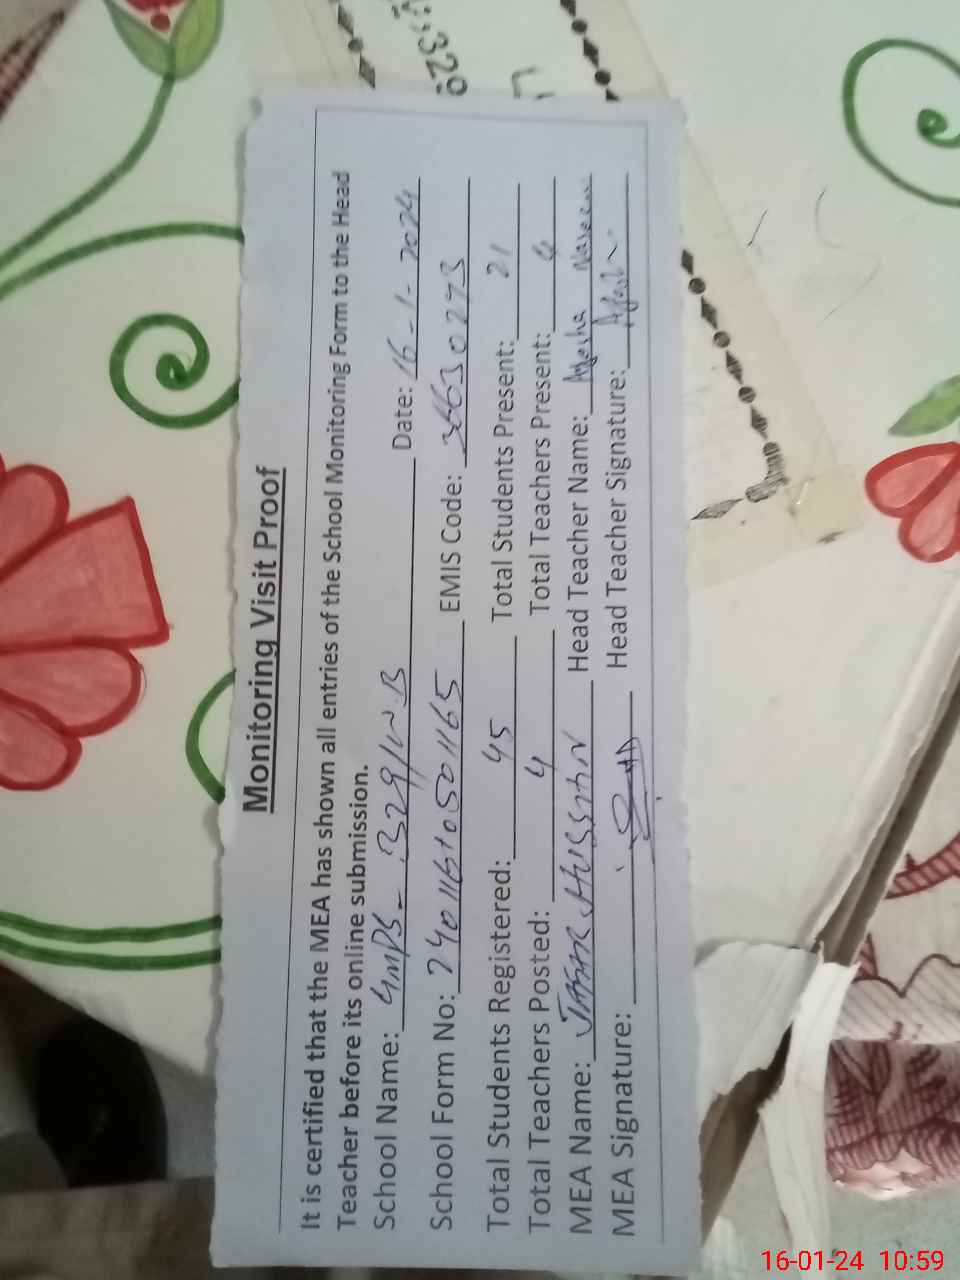 Monitoring Visit Proof
It is certified that the MEA has shown all entries of the School Monitoring Form to the Head
Teacher before its online submission.
School Name: GMPS - 329/W.B Date: 16-1-2024
School Form No: 24011610501165 EMIS Code: 36630273
Total Students Registered: 45 Total Students Present: 21
Total Teachers Posted: 4 Total Teachers Present: 4
MEA Name: JAFAR HUSSAIN Head Teacher Name: Ayesha Naseem
MEA Signature: Head Teacher Signature:
16-01-24 10:59